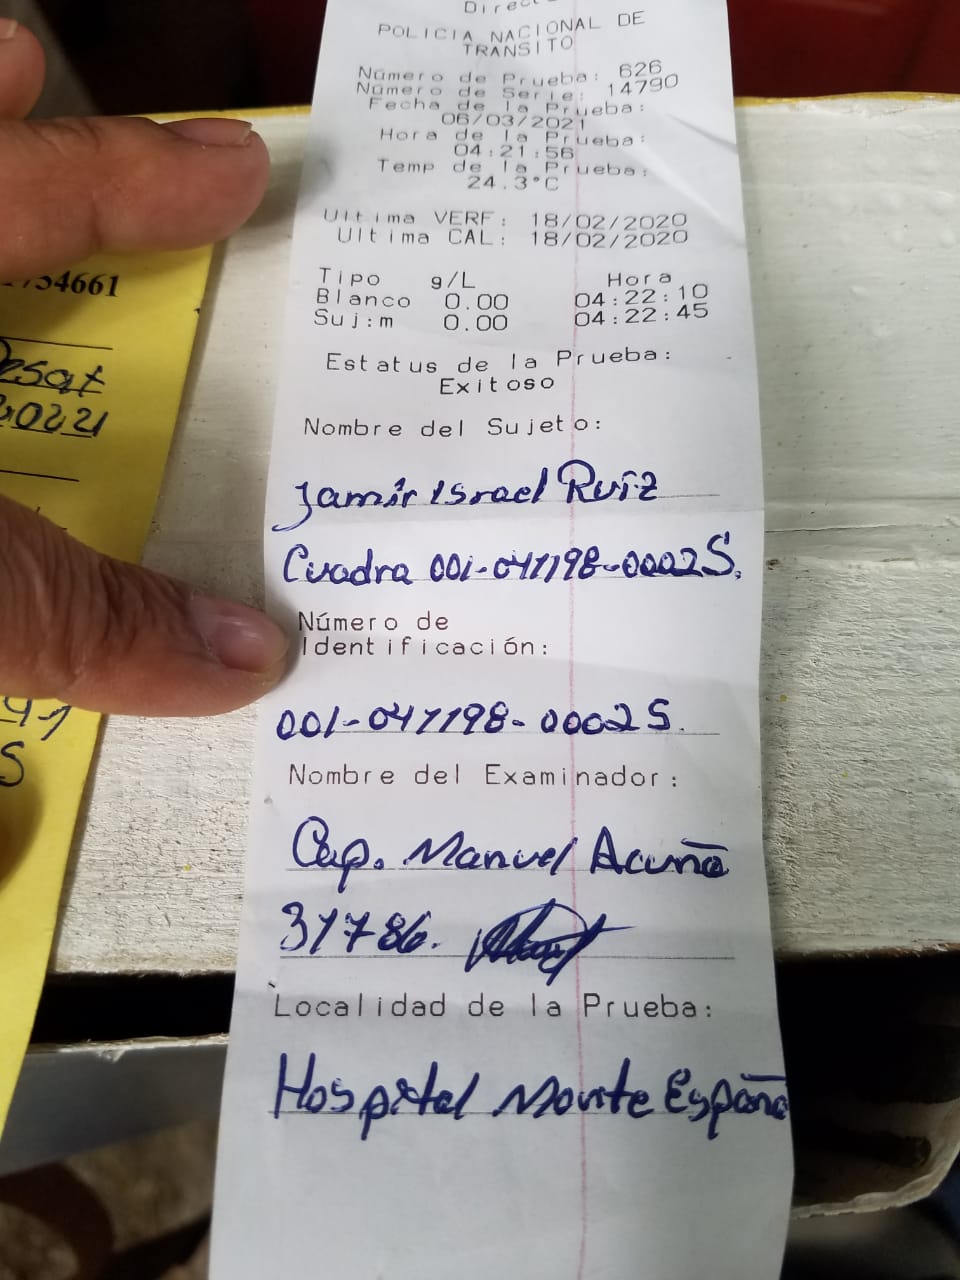 POLICIA NACIONAL DE
TRANSITO
Número de Prueba: 626
Número de Serie: 14790
Fecha de la Prueba:
06/03/2021
Hora de la Prueba:
04:21:56
Temp de la Prueba:
24.3°C
Ultima VERF: 18/02/2020
Ultima CAL: 18/02/2020
Tipo g/L Hora
Blanco 0.00 04:22:10
Suj:m 0.00 04:22:45
Estatus de la Prueba:
Exitoso
Nombre del Sujeto:
Jamir Israel Ruiz
Cuadra 001-041198-0002S.
Número de
Identificación:
001-041198-0002S.
Nombre del Examinador:
Cap. Manuel Acuña
31786.
Localidad de la Prueba:
Hospital Monte España